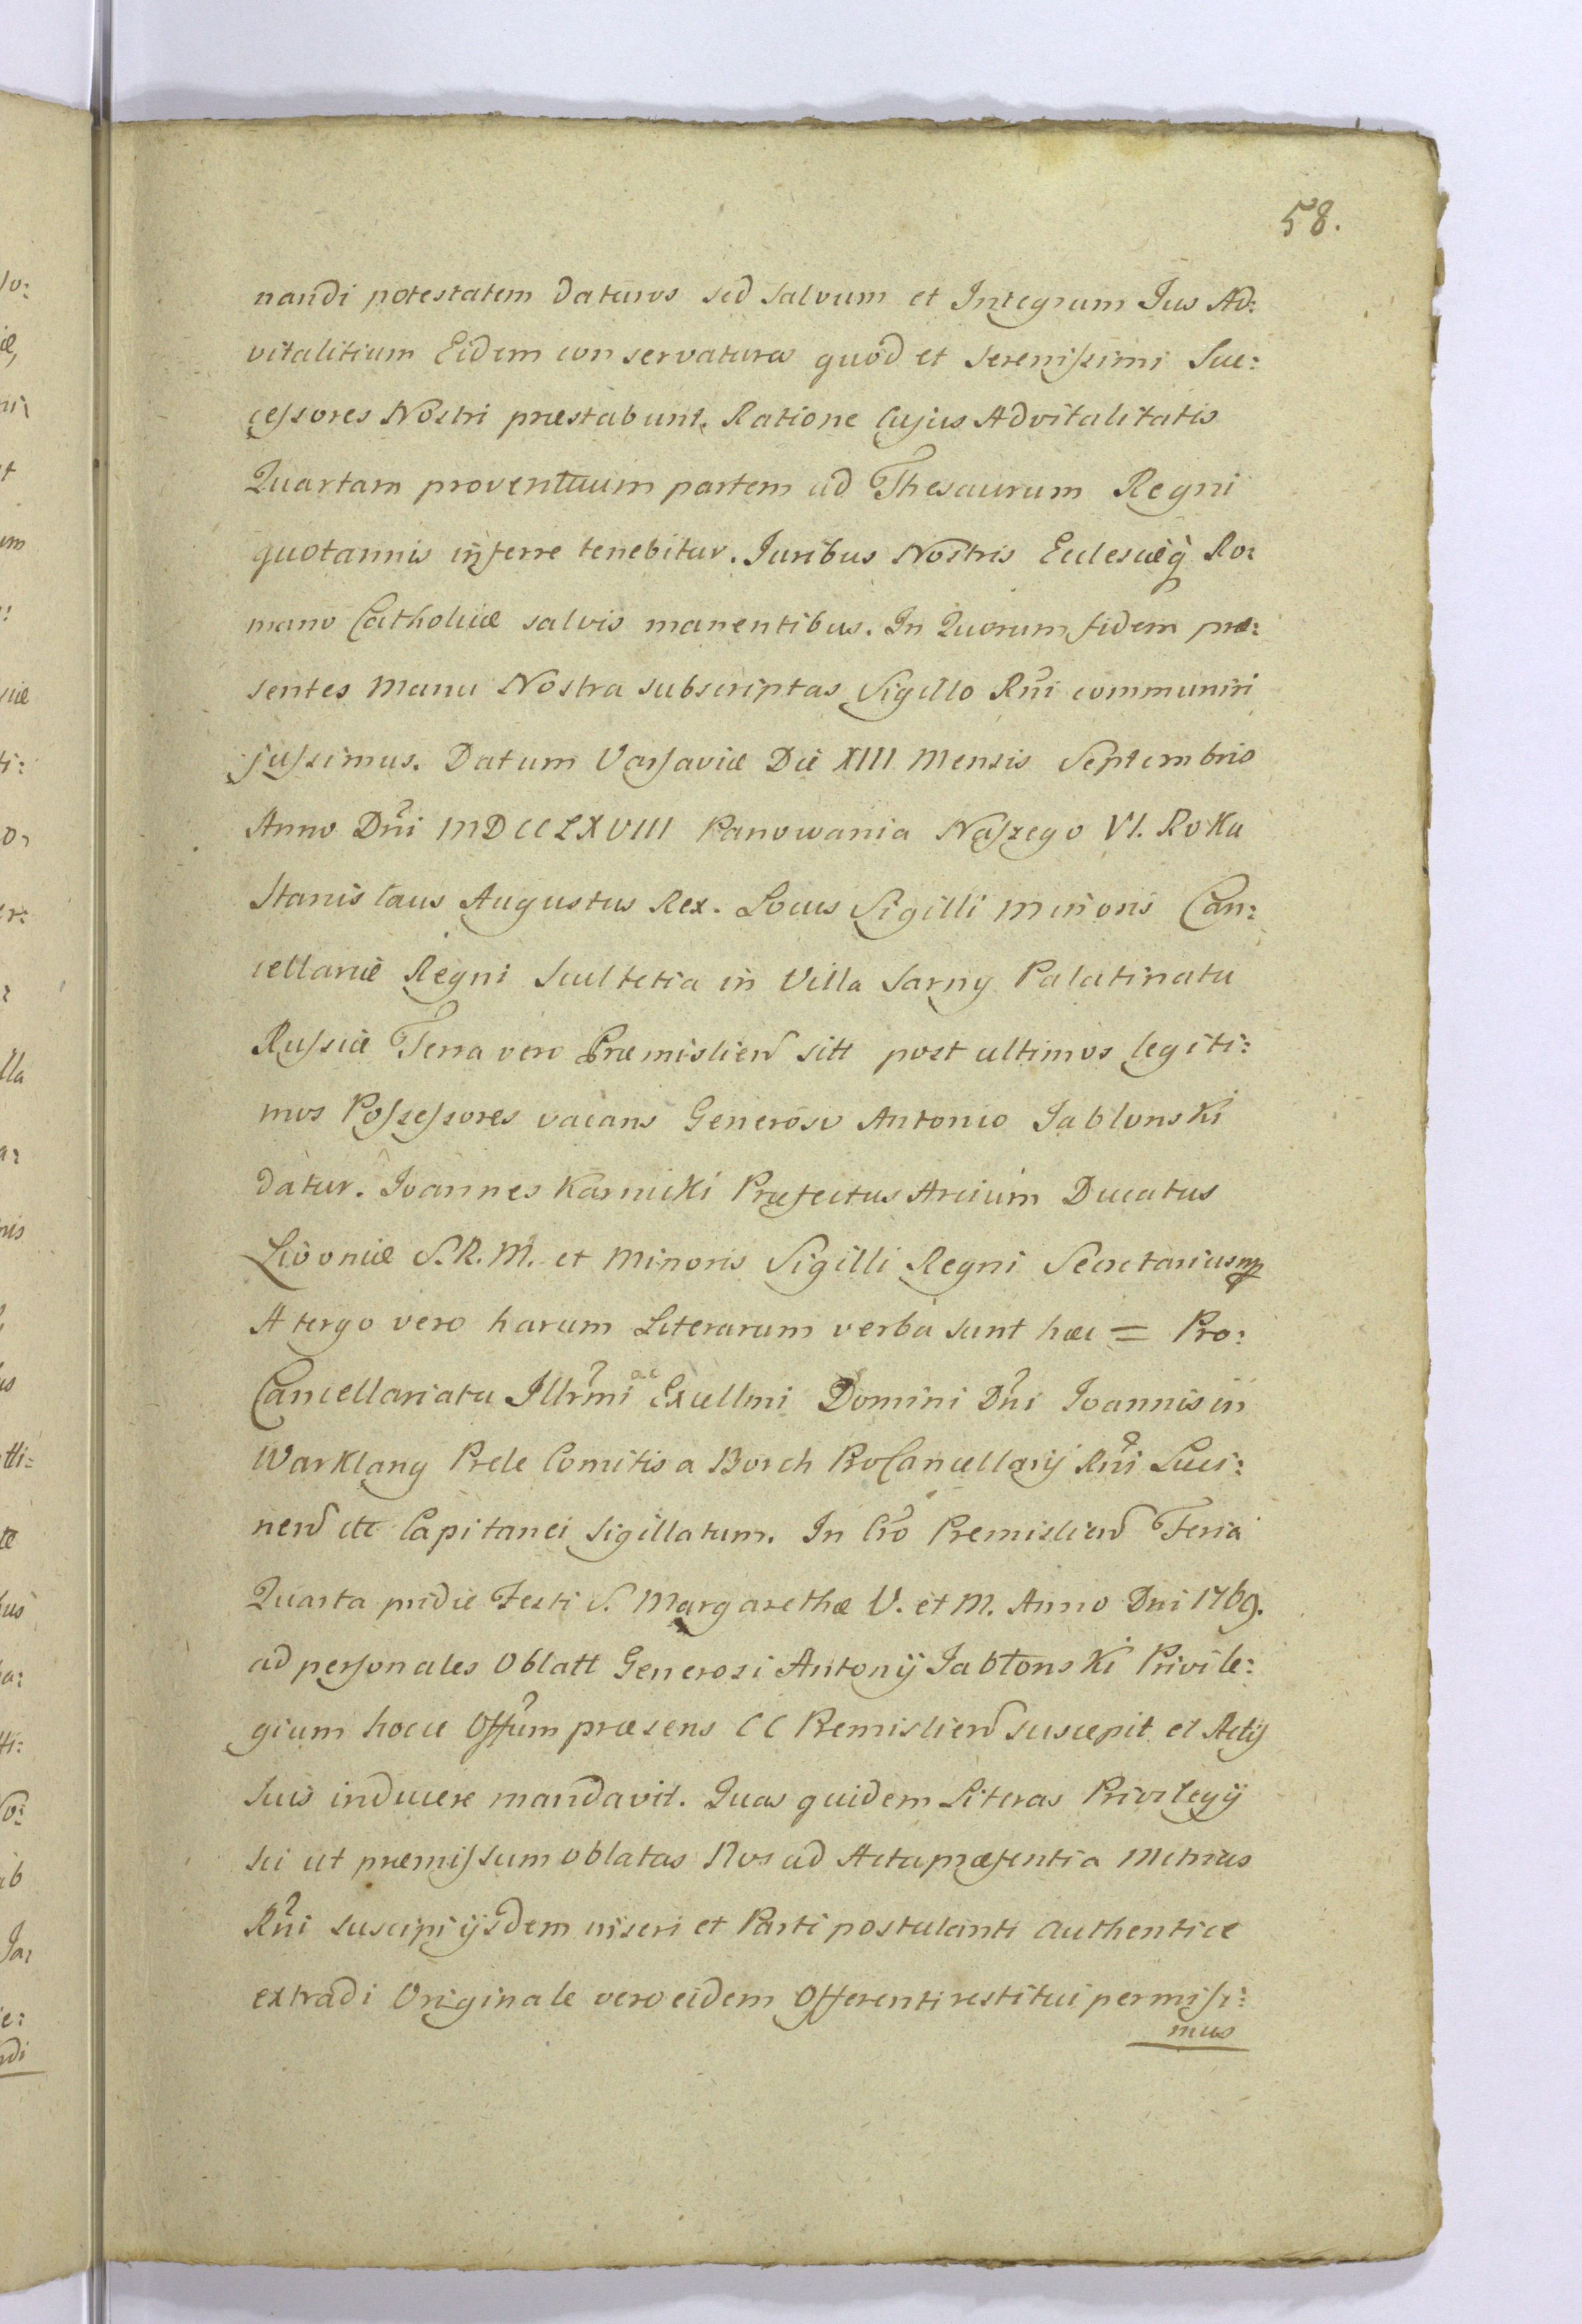 58.
nandi potestatem daturos sed salvum et Integrum Jus Ad:
vitalitium Eidem conservaturos quod et Serenissimi Suc:
cessores Nostri præstabunt. Ratione Cujus Advitalitatis
Quartam proventuum partem ad Thesaurum Regni
quotannis inferre tenebitur. Juribus Nostris Eclesiæq Ro:
mano Catholicæ salvis manentibus. In Quorum fidem præ:
sentes Manu Nostra subscriptas Sigillo Rñi communiri
jussimus. Datum Varsaviæ Die XIII Mensis Septembris
Anno Dñi MDCCLXVIII Panowania Naszego VI. Roku
Stanislaus Augustus Rex. Locus Sigilli Minoris Can:
cellariæ Regni Scultetia in Villa Sarny Palatinatu
Russiæ Terra vero Præmislien sitt post ultimos legiti:
mos Possessores vacans Generoso Antonio Jablonski
datur. Joannes Karnicki Præfectus Arcium Ducatus
Livoniæ S.R.M. et Minoris Sigilli Regni Secretarius mp
A tergo vero harum Literarum verba sunt hæc = Pro:
Cancellariatu Illrmi ac Excellmi Domini Dñi Joannis in
Warklany Prele Comitis a Borch ProCancellarij Rñi Luci:
nen etc Capitanei Sigillatum. In Cro Premislien Feria
Quarta pridie Festi S. Margarethæ V. et M. Anno Dni 1769.
ad personales Oblatt Generosi Antonij Jabłonski Privile:
gium hocce Offum præsens CC Premislien suscepit et Actis
suis inducere mandavit. Quas quidem Literas Privilegij
sic ut præmissum oblatas Nos ad Acta præsentia Metrices
Rñi suscipi ijsdem inseri et Parti postulanti authentice
extradi Originale vero eidem Offerenti restitui permisi:
mus